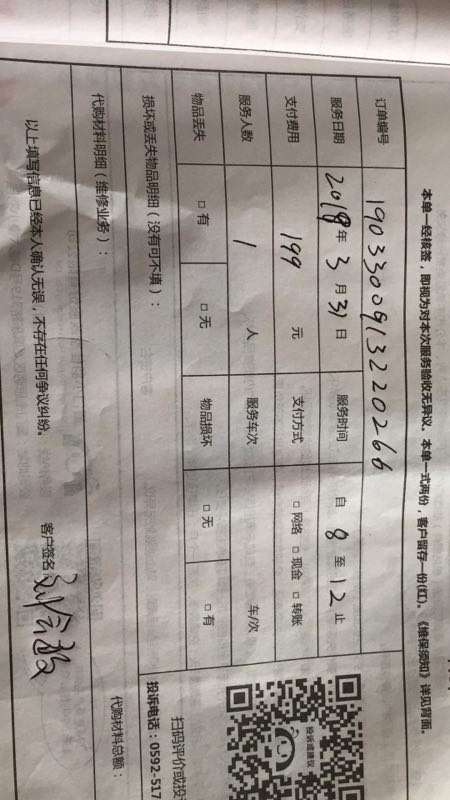 本单一经核签，即视为对本次服务验收无异议。本单一式两份，客户留存一份(红)。《维保须知》详见背面。
订单编号 1903300913220266
服务日期 2019年 3 月 31 日 服务时间 自 8 至 12 止
支付费用 199 元 支付方式 □ 网络 □ 现金 □ 转账
服务人数 1 人 服务车次 车/次
物品丢失 □ 有 □ 无 物品损坏 □ 无 □ 有
损坏或丢失物品明细（没有可不填）：
代购材料明细（维修业务）：
代购材料总额：
以上填写信息已经本人确认无误，不存在任何争议纠纷。 客户签名
投诉或建议
扫码评价或投
投诉电话：0592-517